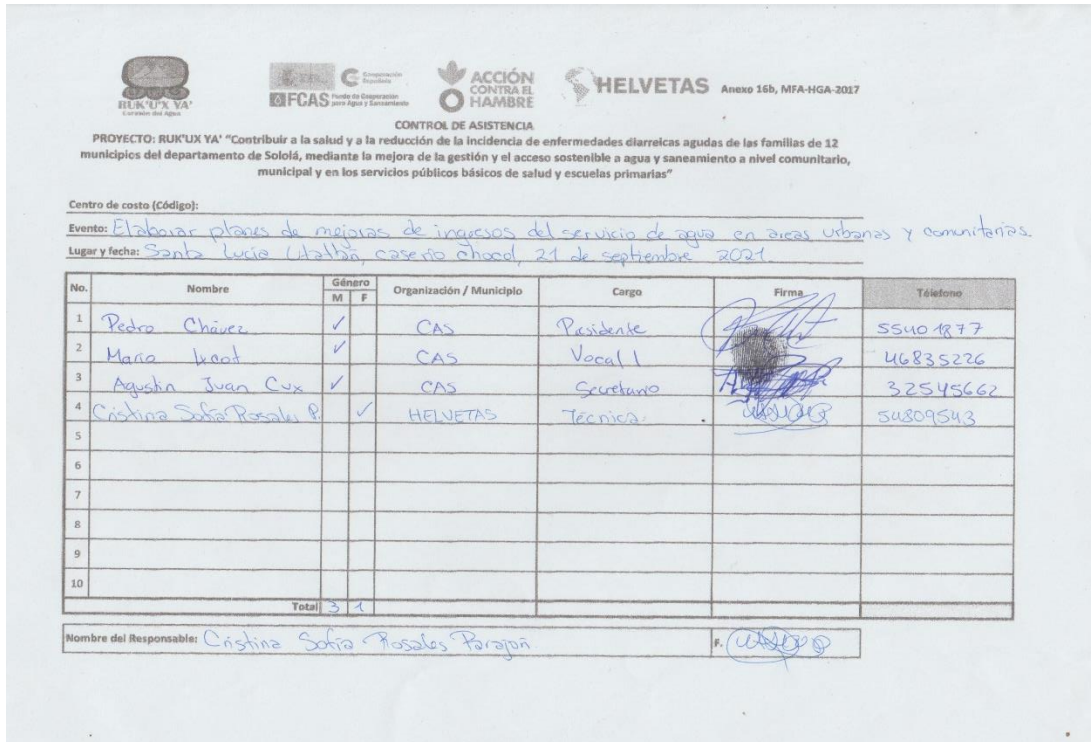 RUK'U'X YA'
Corazón del Agua
Cooperación Española
FCAS Fondo de Cooperación para Agua y Saneamiento
ACCIÓN CONTRA EL HAMBRE
HELVETAS Anexo 16b, MFA-HGA-2017
CONTROL DE ASISTENCIA
PROYECTO: RUK'UX YA' "Contribuir a la salud y a la reducción de la incidencia de enfermedades diarreicas agudas de las familias de 12
municipios del departamento de Sololá, mediante la mejora de la gestión y el acceso sostenible a agua y saneamiento a nivel comunitario,
municipal y en los servicios públicos básicos de salud y escuelas primarias"
Centro de costo (Código):
Evento: Elaborar planes de mejoras de ingresos del servicio de agua en areas urbanas y comunitarias.
Lugar y fecha: Santa Lucía Utatlán, caserío chocol, 21 de septiembre 2021.
No. Nombre Género Organización / Municipio Cargo Firma Télefono
M F
1 Pedro Chávez ✓ CAS Presidente 55401877
2 Mario ✓ CAS Vocal I 46835226
3 Agustin Juan Cux ✓ CAS Secretario 32545662
4 Cristina Sofía Rosales P. ✓ HELVETAS Técnica. 54809543
5
6
7
8
9
10
Total 3 1
Nombre del Responsable: Cristina Sofía Rosales Parajón F.